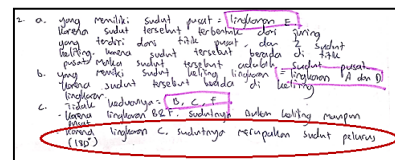 2. a. yang memiliki sudut pusat = lingkaran E
karena sudut tersebut terbentuk dari juring
yang terdiri dari titik pusat, dan 2 sudut
keliling. karena sudut tersebut berada di titik
pusat maka sudut tersebut adalah sudut pusat
b. yang memiliki sudut keliling lingkaran = lingkaran A dan D
karena sudut tersebut berada di keliling
lingkaran.
c. Tidak keduanya = B, C, F
- karena lingkaran B & F, sudutnya bukan keliling maupun
pusat
- karena lingkaran C, sudutnya merupakan sudut pelurus
(180°)